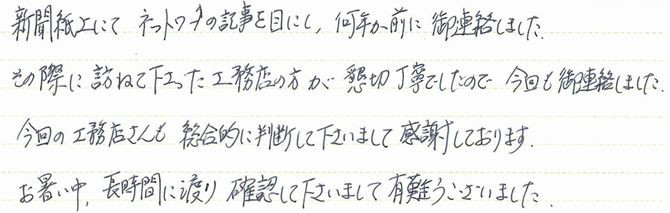 新聞紙上にて ネットワークの記事を目にし、何年か前に 御連絡しました。
その際に 訪ねて下さった 工務店の方が 懇切丁寧でしたので 今回も御連絡しました。
今回の工務店さんも 総合的に判断して下さいまして 感謝しております。
お暑い中、長時間に渡り 確認して下さいまして 有難うございました。